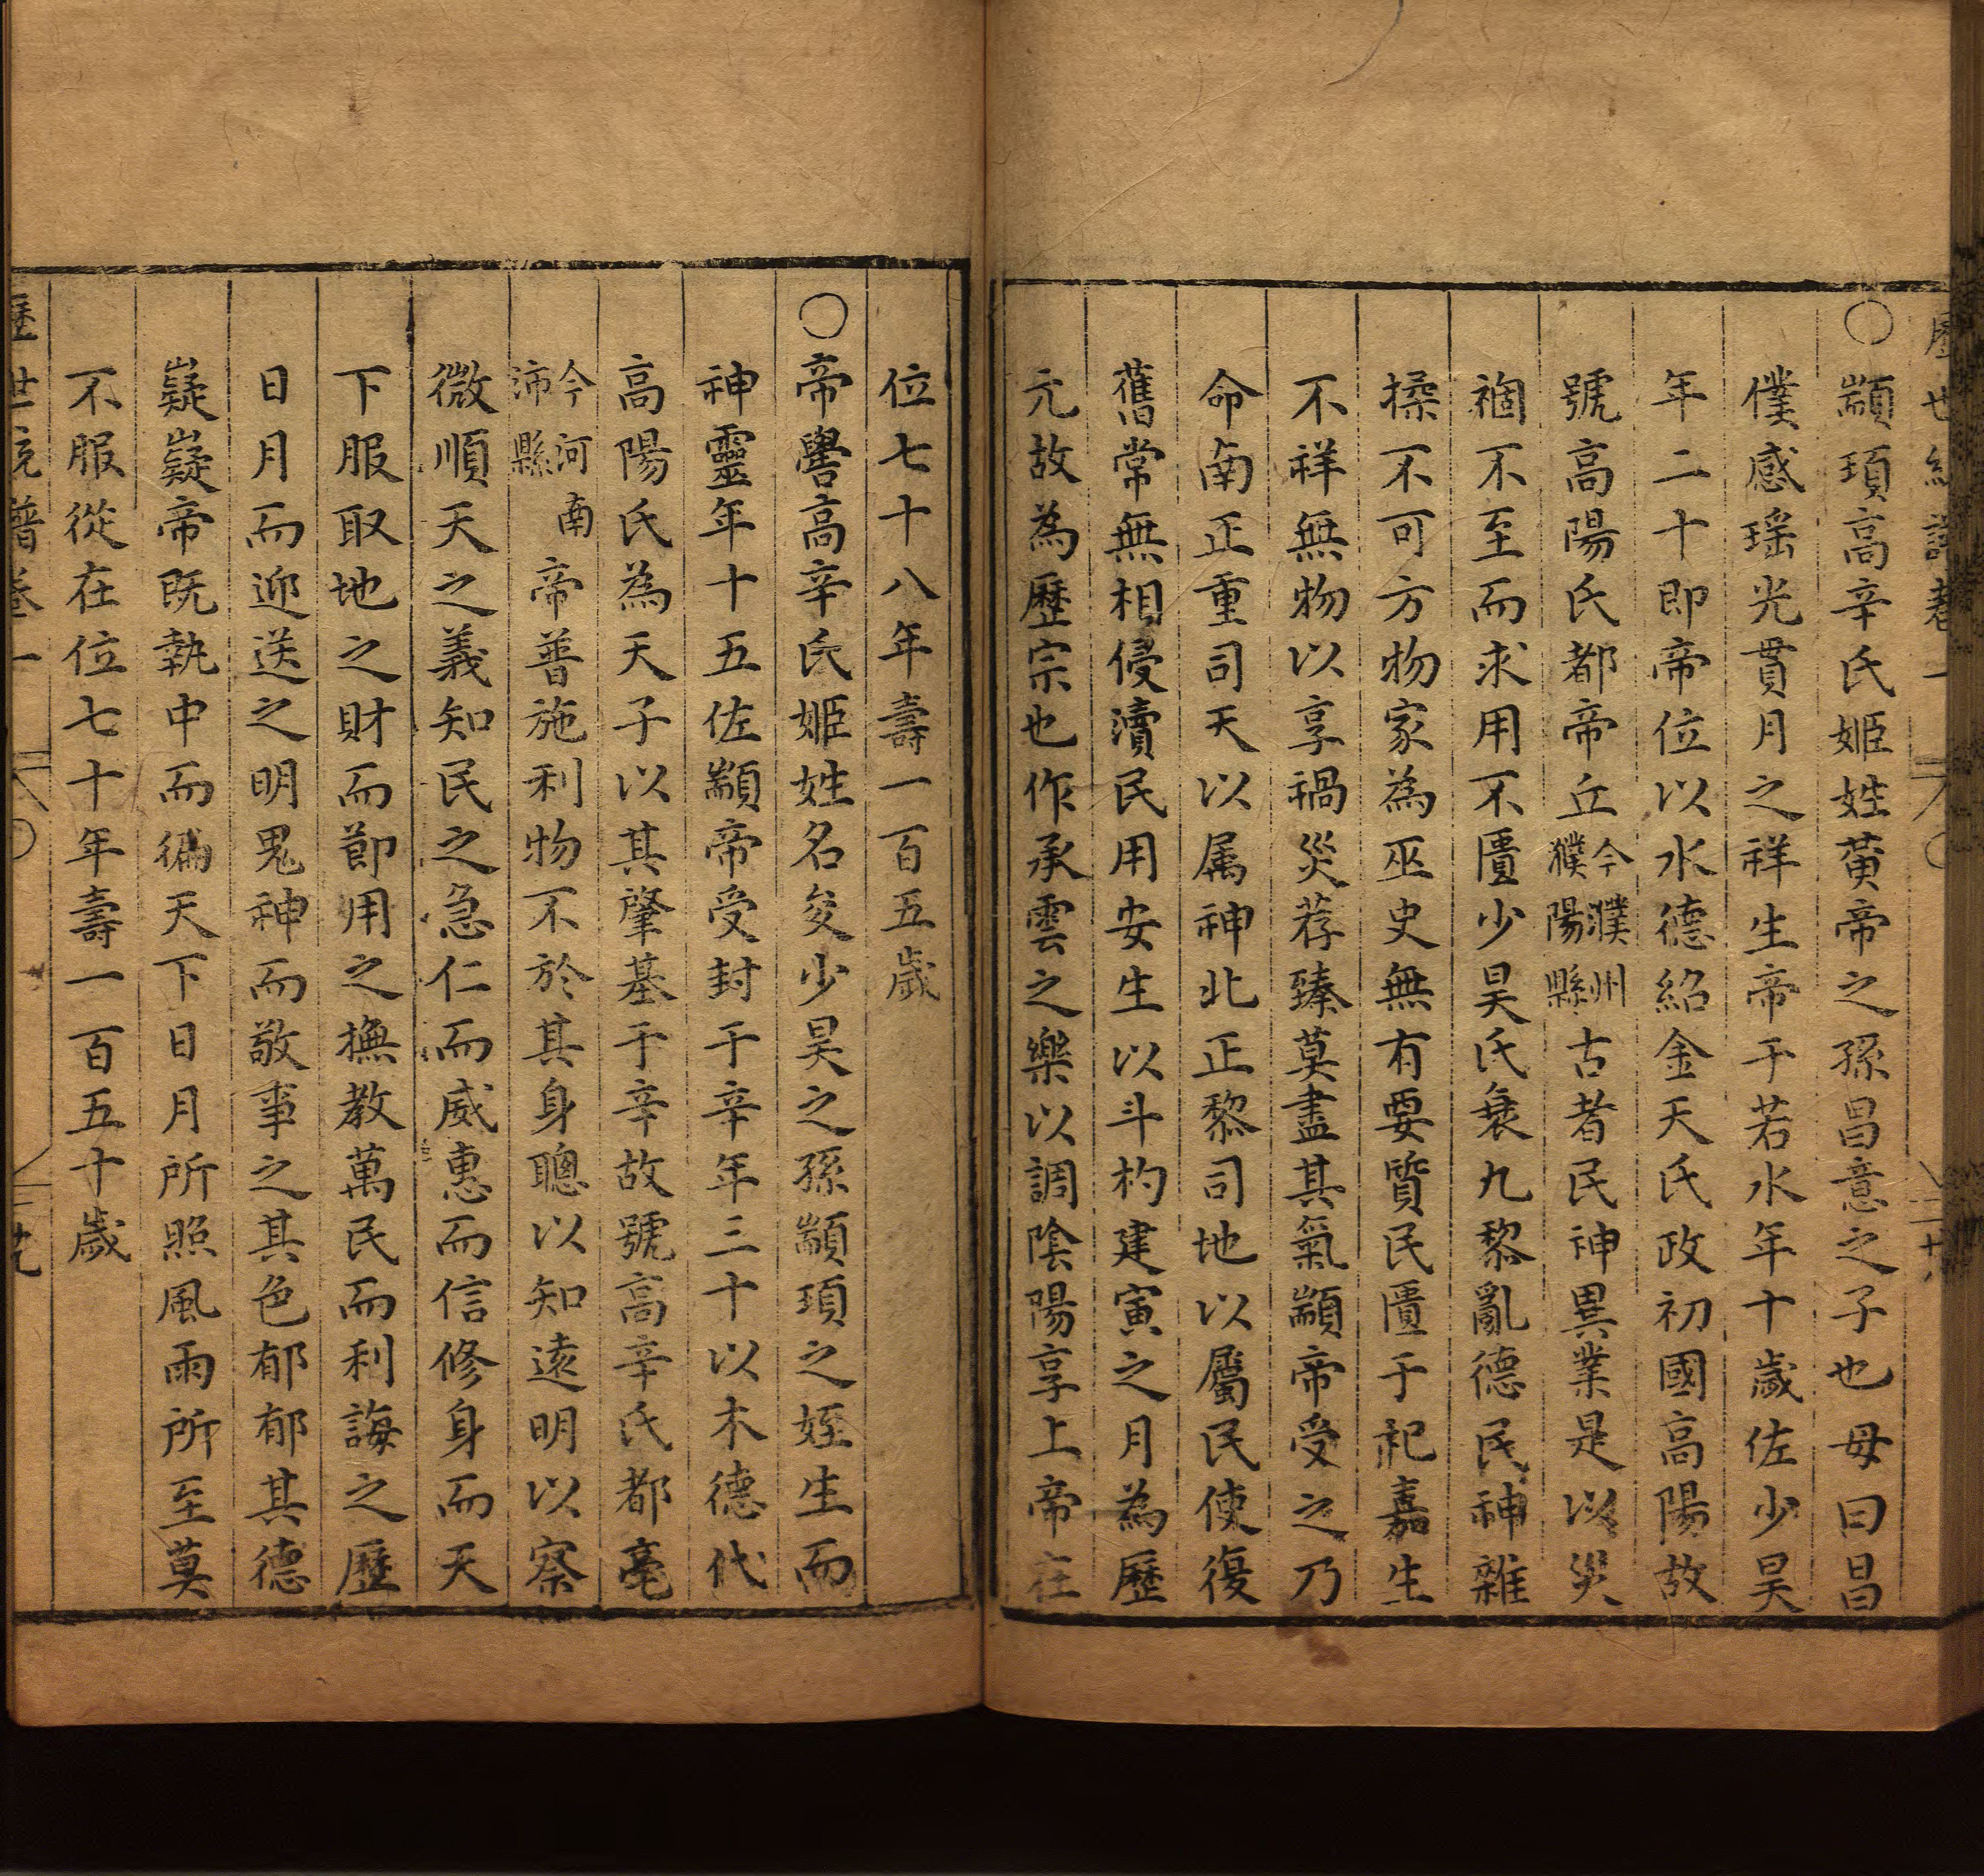 ○顓頊高辛氏姬姓黃帝之孫昌意之子也母曰昌
僕感瑤光貫月之祥生帝于若水年十歲佐少昊
年二十即帝位以水德紹金天氏政初國高陽故
號高陽氏都帝丘今濮州濮陽縣古者民神異業是以災
禍不至而求用不匱少昊氏衰九黎亂德民神雜
揉不可方物家為巫史無有要質民匱于祀嘉生
不祥無物以享禍災荐臻莫盡其氣顓帝受之乃
命南正重司天以属神北正黎司地以屬民使復
舊常無相侵瀆民用安生以斗杓建寅之月為歷
元故為歷宗也作承雲之樂以調陰陽享上帝在
位七十八年壽一百五歲
○帝嚳高辛氏姬姓名夋少昊之孫顓頊之姪生而
神靈年十五佐顓帝受封于辛年三十以木德代
高陽氏為天子以其肇基于辛故號高辛氏都亳
今河南沛縣帝普施利物不於其身聰以知遠明以察
微順天之義知民之急仁而威惠而信修身而天
下服取地之財而節用之撫教萬民而利誨之歷
日月而迎送之明鬼神而敬事之其色郁郁其德
嶷嶷帝既執中而徧天下日月所照風雨所至莫
不服從在位七十年壽一百五十歲
歷世統譜卷一